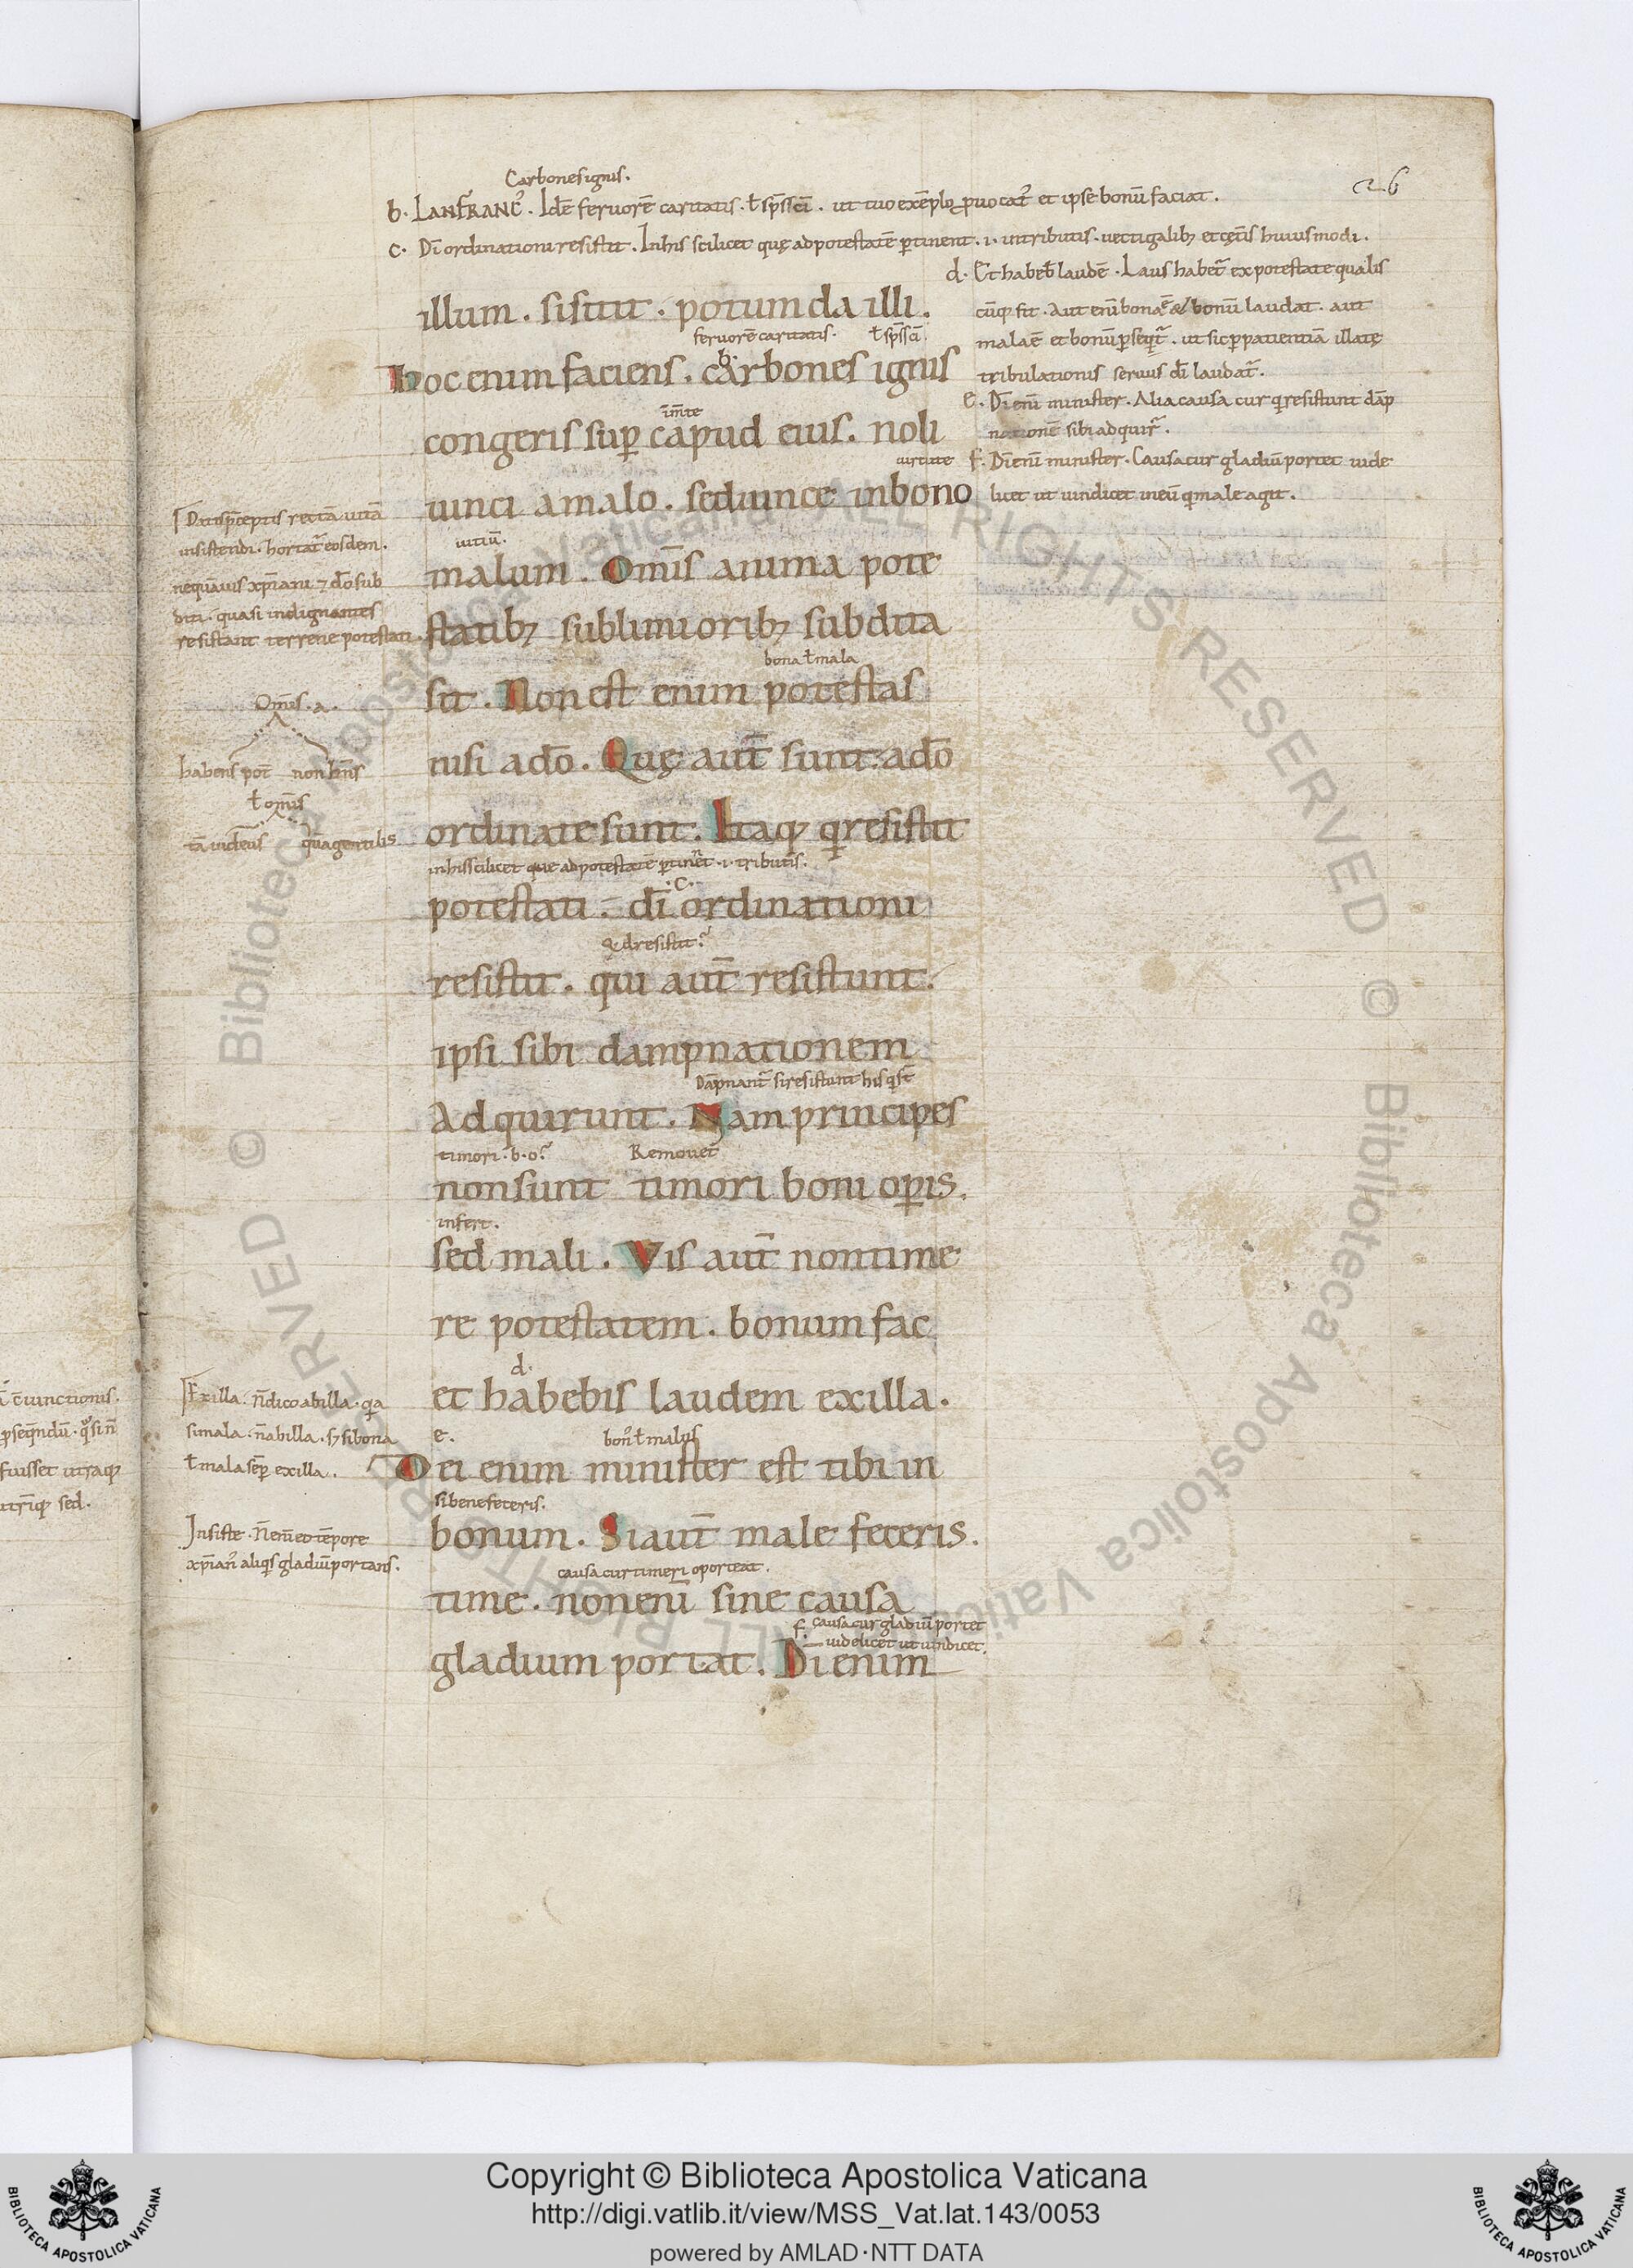 Carbones ignis.
26
b. LANFRANC᾿. Idē feruorē caritatis. ł sp̄s sc̄i. ut tuo exēplo prouocat᾿ et ipse bonū faciat.
c. Dī ordinationi resistit. In his scilicet quę ad potestatē ꝑtinent. i. in tributis. uectigalibꝫ et cęt̄is huiusmodi.
d. Et habeb̄ laudē. Laus habet᾿ ex potestate qualis
cūqꝫ sit. Aut enī bona ē & bonū laudat. aut
mala ē et bonū ꝑseqt᾿. ut sic ꝑ patientiā illatę
tribulationis seruus dī laudat᾿.
e. Dī enī minister. Alia causa cur q̄ resistunt dāp
nationē sibi adquir᾿.
f. Dī enī minister. Causa cur gladiū portet uide
licet ut uindicet in eū q̄ male agit.
illum. sitit. potum da illi.
feruorē caritatis. ł sp̄s sc̄i.
b.
Hoc enim faciens. carbones ignis
im̄te
congeris suꝑ capud eius. noli
uirtute
uinci a malo. sed uince in bono
uitiū.
malum. Om̄is anima pote
statibꝫ sublimioribꝫ subdita
bona ł mala
sit. Non est enim potestas
nisi a dō. Quę aūt sunt. a dō
ordinate sunt. Itaqꝫ q̄ resistit
in his scilicet que ad potestatē ꝑtinēt. i. tributis.
.c.
potestati. dī ordinationi
Qd resistit?
resistit. qui aūt resistunt.
ipsi sibi dampnationem
Dāpnant᾿ si resistunt his q̄ st̄
Adquirunt. Nam principes
timori. b. o? Remouet
non sunt timori boni oꝑis.
infert.
sed mali. Vis aūt non time
re potestatem. bonum fac
d.
et habebis laudem ex illa.
e. bon᾿ ł malus
Dei enim minister est tibi in
si bene feceris.
bonum. Si aūt male feceris.
causa cur timeri oporteat.
time. non enī sine causa
f. causa cur gladiū portet
uidelicet ut uindicet.
gladium portat. Di enim
Datis p̄ceptis rectā uitā
insistendi. hortat᾿ eosdem.
ne quāuis xp̄iani ⁊ dō sub
diti. quasi indignantes
resistant terrene potestati.
Om̄is. a.
habens pot̄ non hn̄s
ł om̄is
tā iudeus quā gentilis
Ex illa. n̄ dico ab illa. q̄a
si mala. n̄ ab illa. sꝫ si bona
ł mala seꝑ ex illa.
Insiste. n̄ em̄ eo tēpore
xp̄ian᾿ aliq̄s gladiū portans.
c̄iunctionis.
ꝑseq̄ndū. qᵒ si n̄
fuisset utraqꝫ
utrīqꝫ sed.
© Biblioteca Apostolica Vaticana ALL RIGHTS RESERVED © Biblioteca Apostolica Vaticana ALL RIGHTS RESERVED
Copyright © Biblioteca Apostolica Vaticana
http://digi.vatlib.it/view/MSS_Vat.lat.143/0053
powered by AMLAD·NTT DATA
BIBLIOTECA APOSTOLICA VATICANA
BIBLIOTECA APOSTOLICA VATICANA